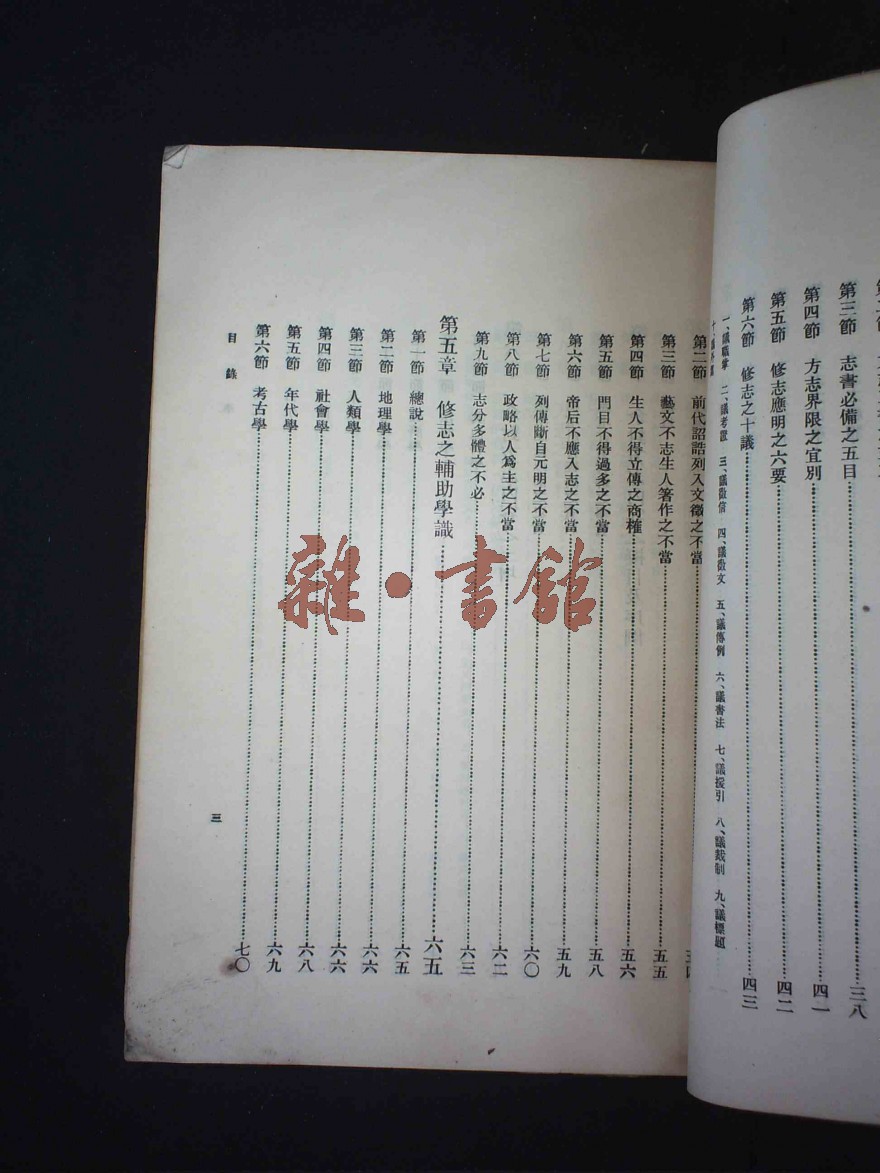 第三節　志書必備之五目…………三八
第四節　方志界限之宜別…………四一
第五節　修志應明之六要…………四二
第六節　修志之十議…………四三
一、議職掌　二、議考證　三、議徵信　四、議徵文　五、議傳例　六、議書法　七、議援引　八、議裁制　九、議標題
第二節　前代詔誥列入文徵之不當…………
第三節　藝文不志生人著作之不當…………五五
第四節　生人不得立傳之商榷…………五六
第五節　門目不得過多之不當…………五八
第六節　帝后不應入志之不當…………五九
第七節　列傳斷自元明之不當…………六〇
第八節　政略以人爲主之不當…………六二
第九節　志分多體之不必…………六三
第五章　修志之輔助學識…………六五
第一節　總說…………六五
第二節　地理學…………六六
第三節　人類學…………六六
第四節　社會學…………六八
第五節　年代學…………六九
第六節　考古學…………七〇
目錄
三
雜·書館